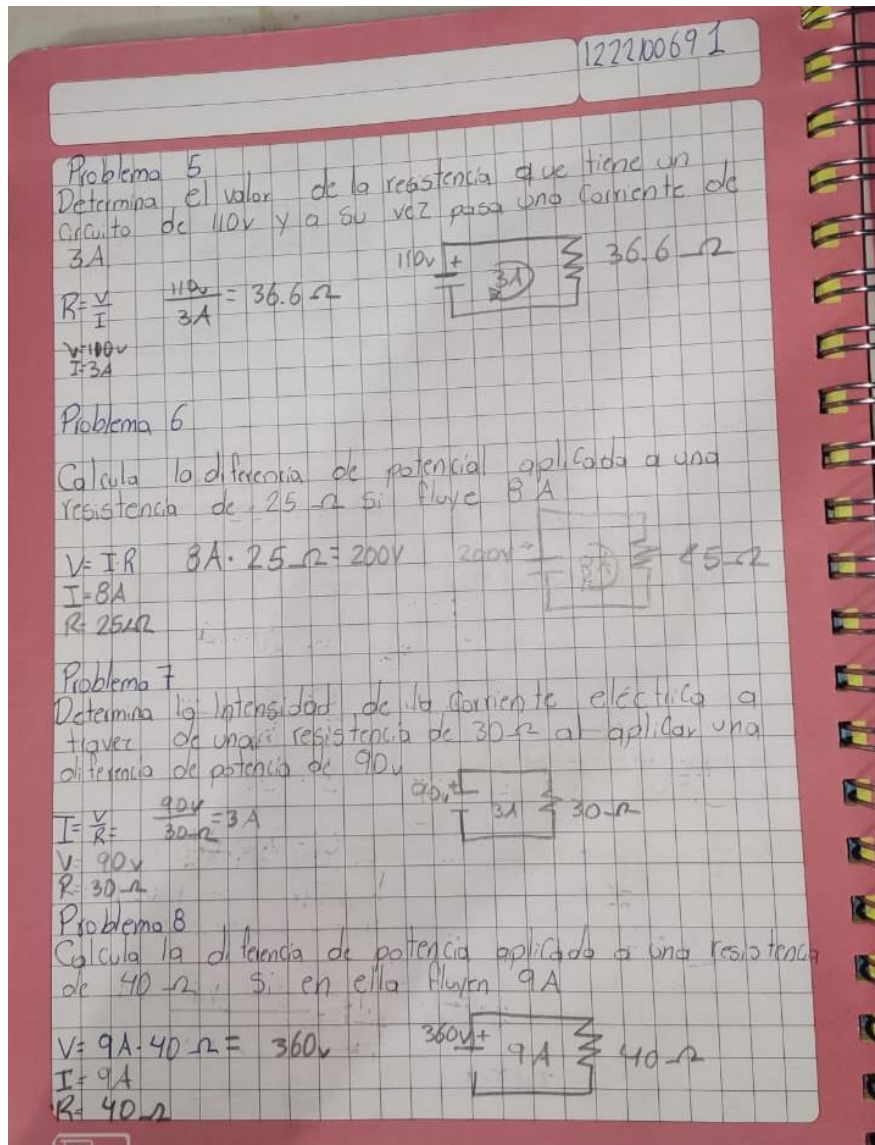 122210069 1
Problema 5
Determina el valor de la resistencia que tiene un
circuito de 110v y a su vez pasa una corriente de
3A
110v + 3A 36.6 Ω
R=V/I 110v/3A = 36.6 Ω
I=3A
Problema 6
Calcula la diferencia de potencial aplicada a una
resistencia de 25 Ω si fluye 8 A
V= I·R 8A · 25 Ω = 200V 200v +
I=8A
R= 25Ω
Problema 7
Determina la intensidad de la corriente eléctrica a
traver de una resistencia de 30 Ω al aplicar una
diferencia de potencia de 90v
90v + 3A 30 Ω
I= V/R= 90v/30Ω =3A
V= 90v
R= 30 Ω
Problema 8
Calcula la diferencia de potencia aplicada a una resistencia
de 40 Ω, si en ella fluyen 9A
V= 9A·40 Ω = 360v 360v + 9A 40 Ω
I= 9A
R= 40Ω